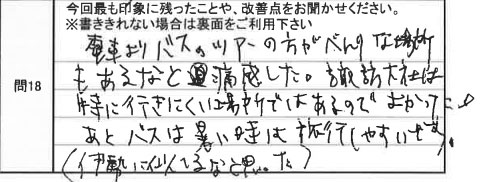 今回最も印象に残ったことや、改善点をお聞かせください。
※書ききれない場合は裏面をご利用下さい
問18
電車よりバスのツアーの方がべんりな場所
もあるなと痛感した。諏訪大社は
特に行きにくい場所ではあるのでよかった
あとバスは暑い時は旅行しやすいです。
(伊勢に似てるなと思った)